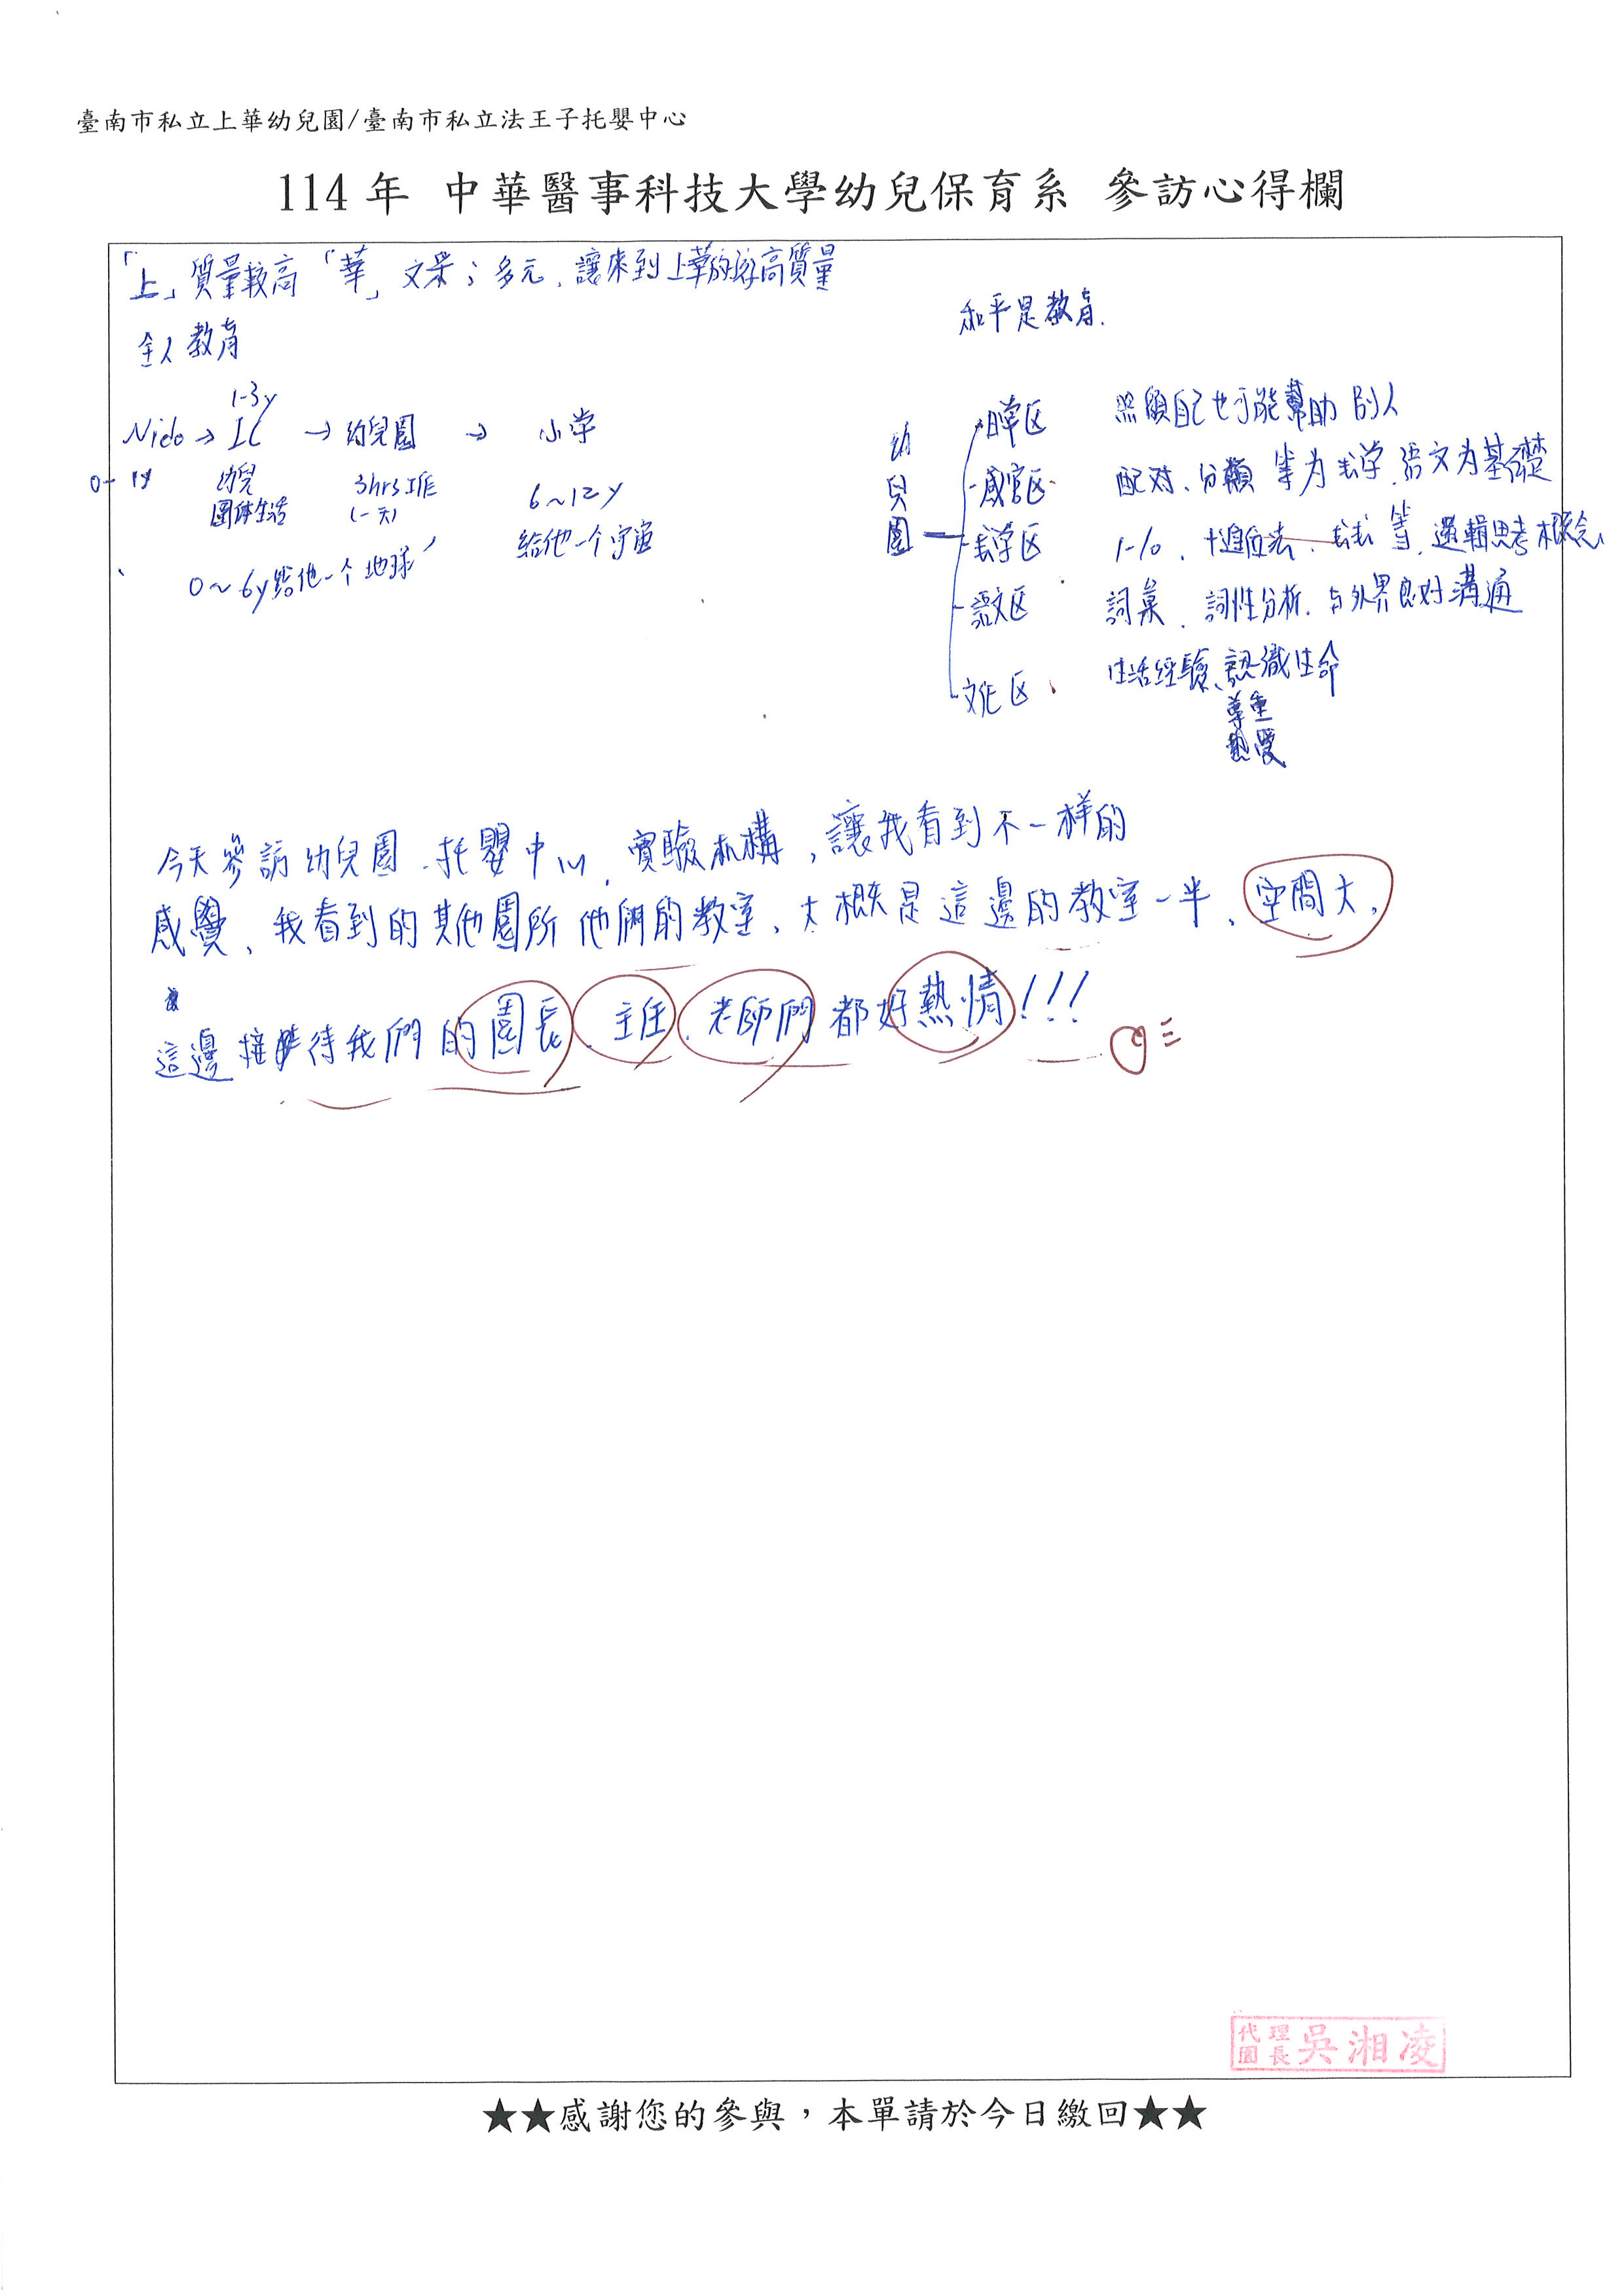 臺南市私立上華幼兒園/臺南市私立法王子托嬰中心
114 年 中華醫事科技大學幼兒保育系 參訪心得欄
「上」質量較高「華」文采；多元，讓來到上華的孩高質量
和平是教育.
全人教育
1-3y
Nido → IC → 幼兒園 → 小学
0- 1y
幼兒
團体生活
3hrs工作
(一天)
6~12y
給他一个宇宙
0~6y給他一个地球
幼兒園
日常区 照顧自己也可能幫助別人
感官区 配对、分類 等为数学.語文为基礎
数学区 1-10、十進位法、 等,邏輯思考概念
語文区 詞彙、詞性分析.与外界良好溝通
文化区 生活經驗、認識生命
尊重
熱愛
今天參訪幼兒園.托嬰中心.實驗机構,讓我看到不一样的
感覺、我看到的其他園所他們的教室、大概是這邊的教室一半、空間大,
這邊接待我們的園長、主任、老師們都好熱情!!!
代理園長 吳湘凌
★★感謝您的參與，本單請於今日繳回★★